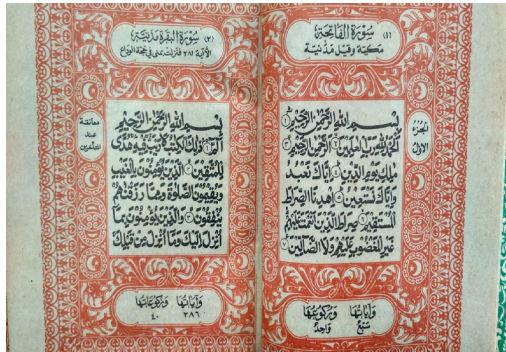 (١) سُورَةُ الْفَاتِحَةِ
مَكِّيَّة وَقِيلَ مَدَنِيَّة
الجُزءُ
الاوّلُ
بِسْمِ اللهِ الرَّحْمٰنِ الرَّحِيْمِ ١
اَلْحَمْدُ لِلّٰهِ رَبِّ الْعٰلَمِيْنَ ٢ الرَّحْمٰنِ الرَّحِيْمِ ٣
مٰلِكِ يَوْمِ الدِّيْنِ ٤ اِيَّاكَ نَعْبُدُ
وَاِيَّاكَ نَسْتَعِيْنُ ٥ اِهْدِنَا الصِّرَاطَ
الْمُسْتَقِيْمَ ٦ صِرَاطَ الَّذِيْنَ اَنْعَمْتَ عَلَيْهِمْ
غَيْرِ الْمَغْضُوْبِ عَلَيْهِمْ وَلَا الضَّآلِّيْنَ ٧
وَاٰيَاتُهَا وَرُكُوْعُهَا
سَبْعٌ وَاحِدٌ
(٢) سُورَةُ الْبَقَرَةِ مَدَنِيَّة
الآية ٢٨١ فنزلت بمنى في حجة الوداع
معانقة
عند
المتأخرين
بِسْمِ اللهِ الرَّحْمٰنِ الرَّحِيْمِ
الٓمّٓ ١ ذٰلِكَ الْكِتٰبُ لَا رَيْبَ فِيْهِ هُدًى
لِّلْمُتَّقِيْنَ ٢ الَّذِيْنَ يُؤْمِنُوْنَ بِالْغَيْبِ
وَيُقِيْمُوْنَ الصَّلٰوةَ وَمِمَّا رَزَقْنٰهُمْ
يُنْفِقُوْنَ ٣ وَالَّذِيْنَ يُؤْمِنُوْنَ بِمَا
اُنْزِلَ اِلَيْكَ وَمَا اُنْزِلَ مِنْ قَبْلِكَ
وَاٰيَاتُهَا وَرُكُوْعَاتُهَا
٢٨٦ ٤٠